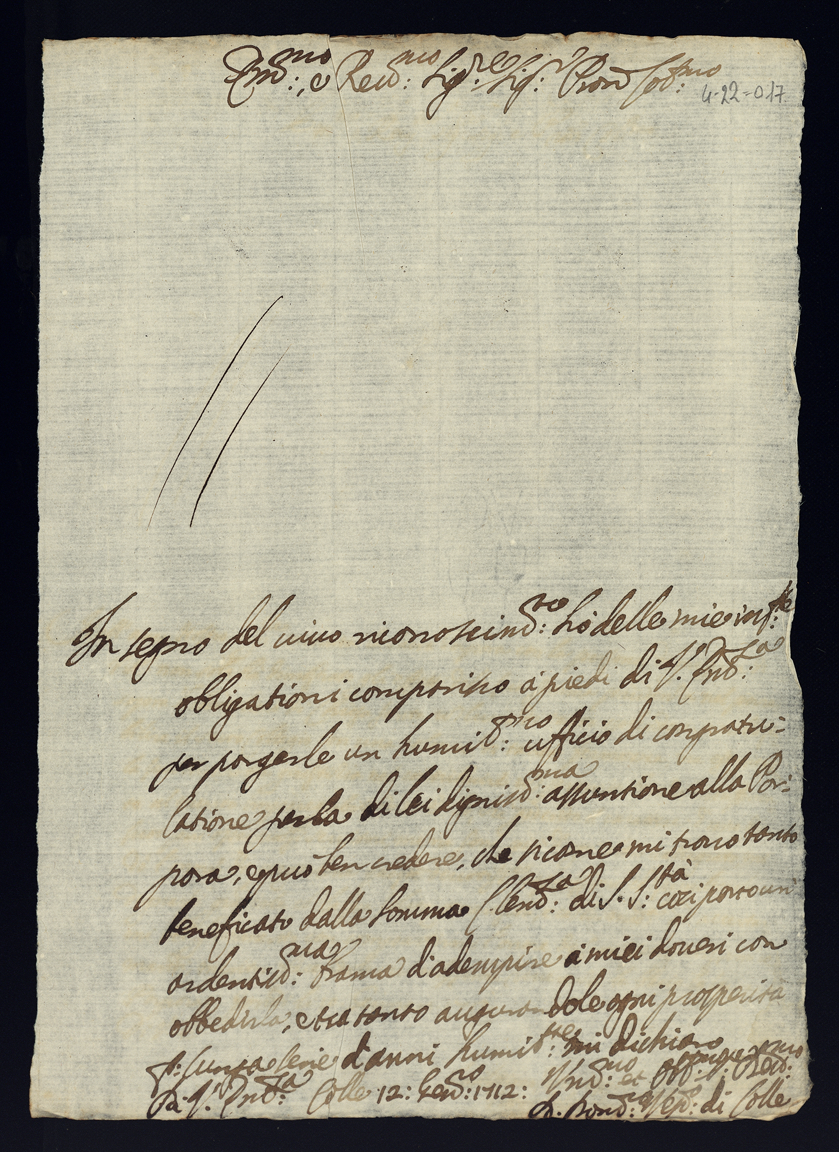 Em.mo, e Reu.mo Sig.re Sig.r Pron Col.mo
4-22-017
In segno del uiuo riconoscim.to hò delle mie inf.te
obligationi comparisco à piedi di V. Em.za
per porgerle un humil.mo ufficio di congratu=
latione per la di lei dignis.ma assuntione alla Por=
pora, e può ben credere, che sicome mi trouo tanto
beneficato dalla somma Clem.za di S. S.tà cosi porto un
ardentis.ma brama d'adempire à miei doueri con
obbedirla, e tra tanto augurandole ogni prosperità
p: lunga serie d'anni humil.te mi dichiaro
Di V. Em.za Colle 12: 1712: Hum.mo et
di Colle